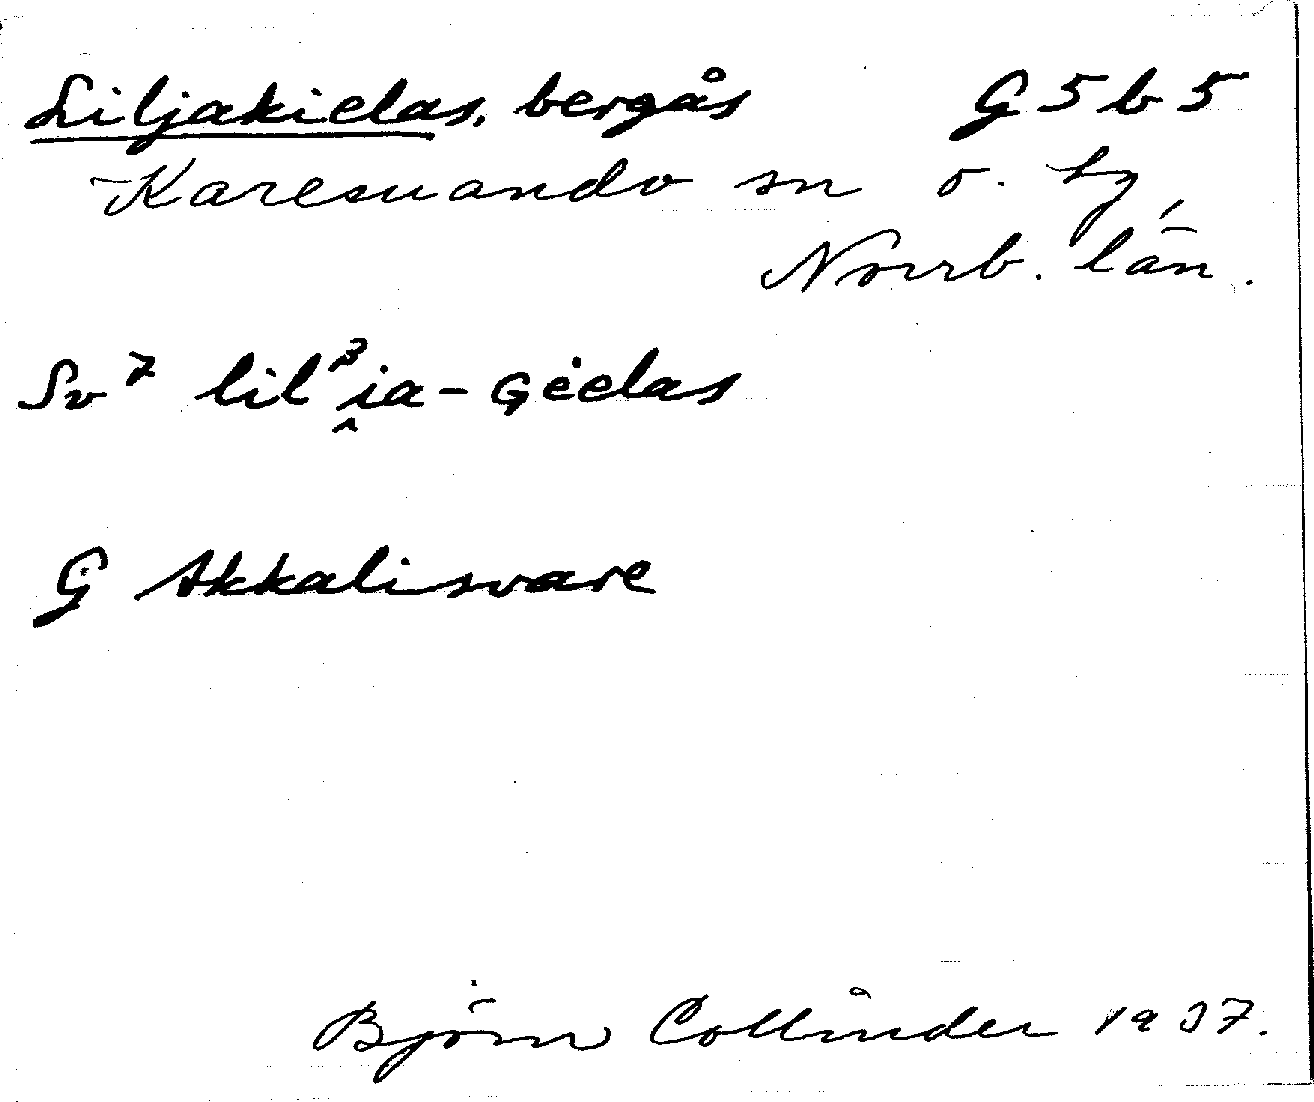 Liljakielas, bergås G5b5
Karesuando sn o. hg,
Norrb. län.
Sv 7 lil³i̭a-Gėelas
G Akkalisvare
Björn Collinder 1937.